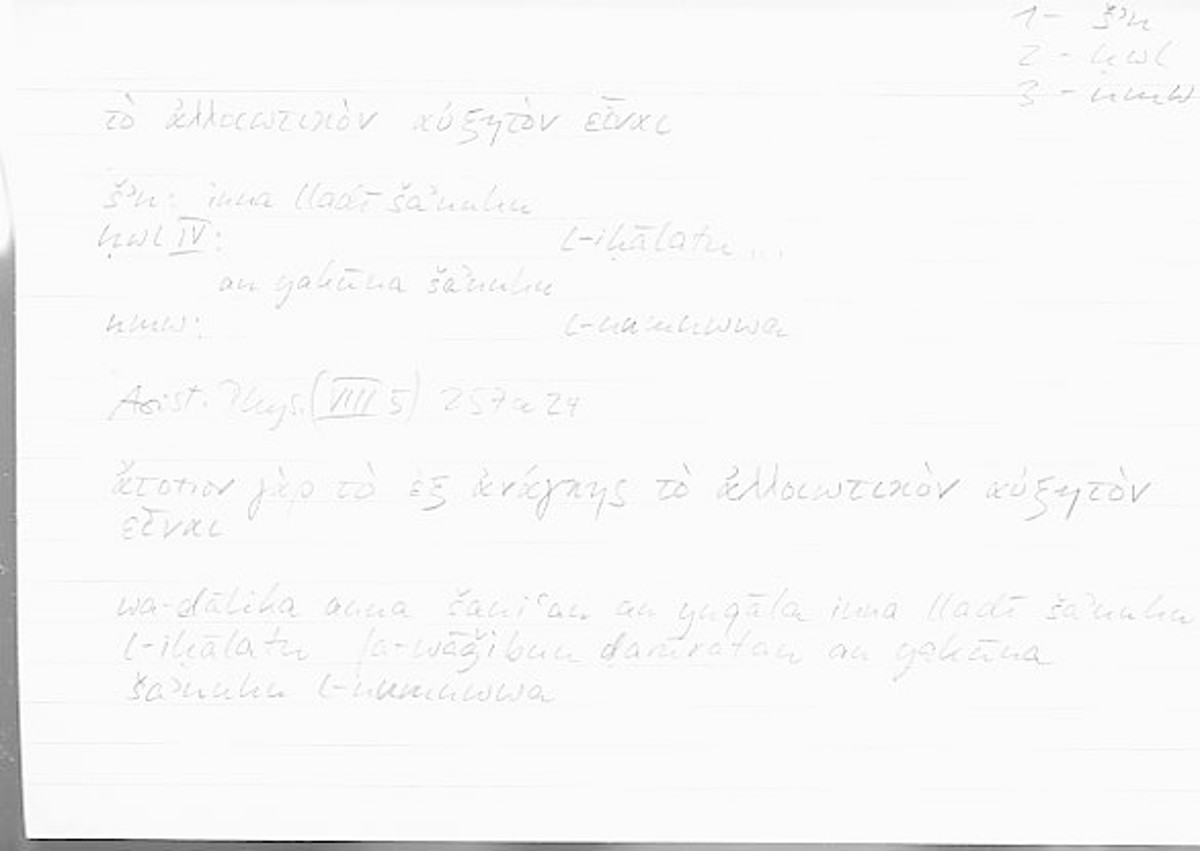 1 - šʾn
2 - ḥwl
3 - nmw
τὸ ἀλλοιωτικὸν αὐξητὸν εἶναι
šʾn: inna lladī šaʾnuhu
ḥwl IV: l-iḥālatu ...
an yakūna šaʾnuhu
nmw: l-numuwwa
Arist. Phys. (VIII 5) 257a24
ἄτοπον γὰρ τὸ ἐξ ἀνάγκης τὸ ἀλλοιωτικὸν αὐξητὸν
εἶναι
wa-dālika anna šanīʿan an yuqāla inna lladī šaʾnuhu
l-iḥālatu fa-wāǧibun ḍarūratan an yakūna
šaʾnuhu l-numuwwa